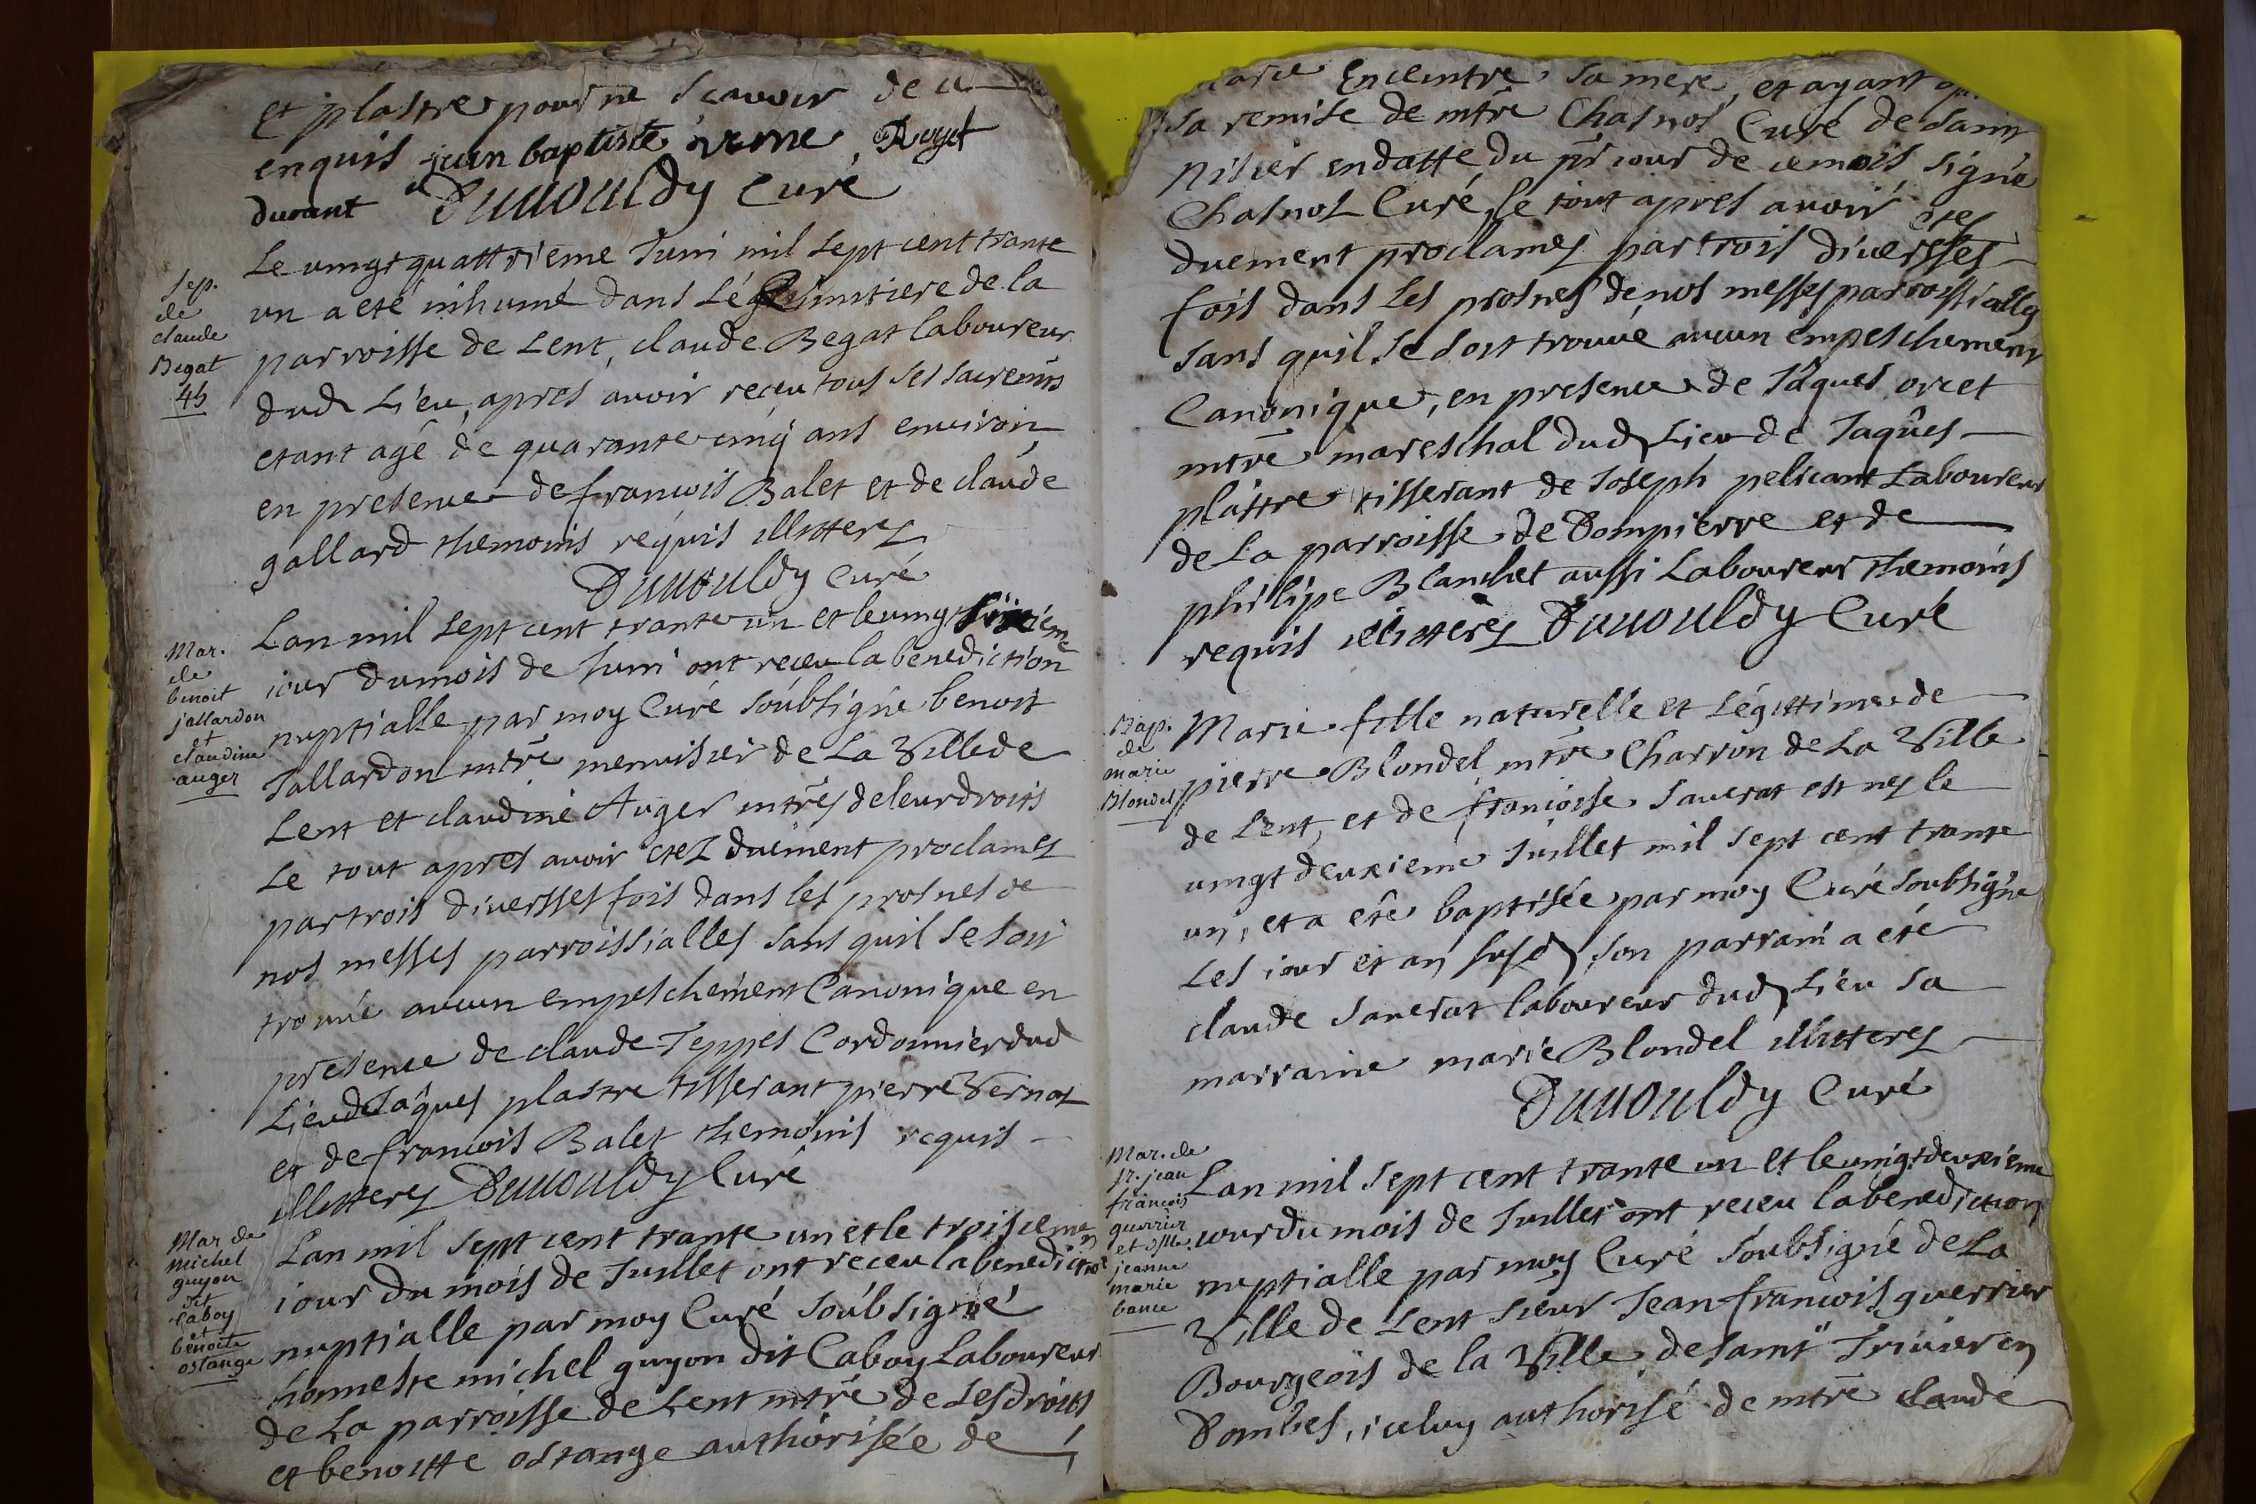 et plastre pour ne scavoir de ce
enquis jean baptiste Royet
durant Duvouldy Curé
Sep.
de
claude
Begat
45
Le vingt quattrieme Juin mil sept cent trante
un a eté inhumé dans Lé Cimitiere de la
parroisse de Lent, claude Begat laboureur
dud Lieu, apres avoir receu tous ses sacremts
etant agé de quarante cinq ans environ
en presence de francois Balet et de claude
gallard themoins requis illitterez
Duvouldy Curé
Mar.
de
benoit
jallardon
et
claudine
auger
Lan mil sept cent trante un et le vingt sixiéme
iour du mois de Juin ont receu la benediction
nuptialle par moy Curé soubsigné benoit
Jallardon mtre menuisier de La Ville de
Lent et claudine Auger mtres de leur droits
Le tout apres avoir etez duëment proclamez
par trois diversses fois dans les prosnes de
nos messes parroissialles sans quil se soit
trouvé aucun empeschement Canonique en
presence de claude Teppes Cordonnier dud
Lieu de Jâques plastre tisserant pierre Vernat
et de francois Balet themoins requis
illitterez Duvouldy Curé
Mar de
michel
guyon
dit
Caboy
et
benoite
ostange
Lan mil sept cent trante un et le troisieme
iour du mois de Juillet ont receu la benediction
nuptialle par moy Curé soubsigné
honneste michel guyon dit Caboy Laboureur
de La parroisse de Lent mtre de ses droits
et benoitte ostange authorisée de
Enciemtre sa mere, et ayant
La remise de mtre Chasnot Curé de Saint
Nisier en datte du pr iour de ce mois, signé
Chasnot Curé, le tout apres avoir etez
duement proclamez par trois diversses
fois dans Les prosnes de nos messes parroissialles
sans quil se soit trouvé aucun empeschement
Canonique, en presence de Jâques orcet
mtre mareschal dud Lieu de Jaques
plâttre tisserant de Joseph pelicant Laboureur
de La parroisse de Dompierre et de
philipe Blanchet aussi Laboureur themoins
requis illitterez Duvouldy Curé
Bap.
de
marie
Blondel
Marie fille naturelle et Légittime de
pierre Blondel mtre Charron de La Ville
de Lent, et de francoise Saverat est nez le
vingt deuxieme Juillet mil sept cent trante
un, et a eté baptisée par moy Curé soubsigné
Les iour et an susd, son parrain a eté
claude Saverat laboureur dud Lieu sa
marraine marie Blondel illitterez
Duvouldy Curé
Mar. de
Sr. jean
francois
guerrier
et dlle
jeanne
marie
bance
Lan mil sept cent trante un et le vingt deuxieme
iour du mois de Juillet ont receu la benediction
nuptialle par moy Curé soubsigné de La
Ville de Lent sieur Jean francois guerrier
Bourgeois de la Ville de saint Trivier en
Dombes, iceluy authorisé de mtre claude